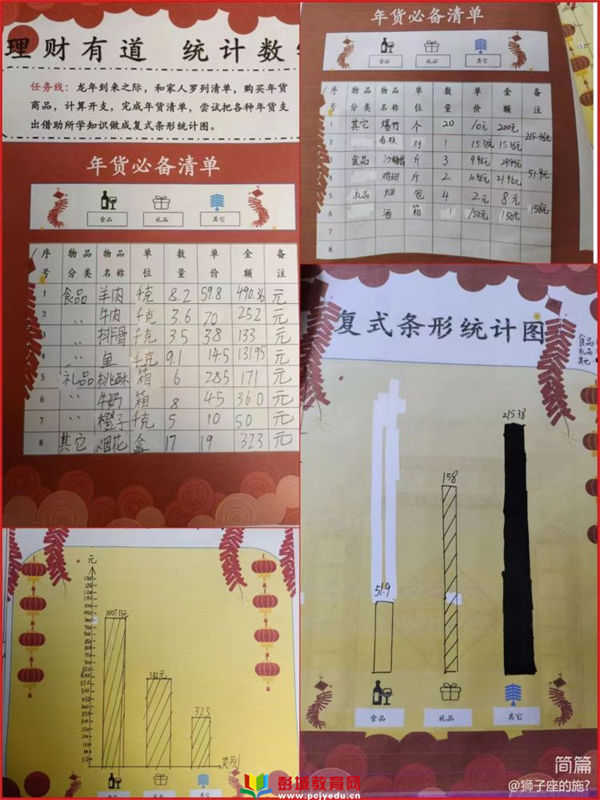 理财有道 统计数
任务线：龙年到来之际，和家人罗列清单，购买年货
商品，计算开支，完成年货清单，尝试把各种年货支
出借助所学知识做成复式条形统计图。
年货必备清单
食品 礼品 其它
序号 物品分类 物品名称 单位 数量 单价 金额 备注
1 食品 羊肉 千克 8.2 59.8 490.36 元
2 〃 牛肉 千克 3.6 70 252 元
3 〃 排骨 千克 3.5 38 133 元
4 〃 鱼 千克 9.1 14.5 131.95 元
5 礼品 桃酥 箱 6 28.5 171 元
6 〃 牛奶 箱 8 45 360 元
7 〃 橙子 千克 5 10 50 元
8 其它 烟花 盒 17 19 323 元
年货必备清单
食品 礼品 其它
序号 物品分类 物品名称 单位 数量 单价 金额 备注
1 其它 爆竹 个 20 10元 200元
2 春联 对 1 15.38元 15.38元 215.38元
3 食品 斤 3
4 鸡翅 斤 2 51.9元
5 礼品 烟 包 4 2元 8元
6 酒 箱 1 150元 150元 158元
7
8
复式条形统计图
食品
礼品
其它
51.9
158
215.38
食品 礼品 其它
元
1007.31元
581元
323
类别
彭城教育网
www.pcjyedu.cn
简篇
@狮子座的施?